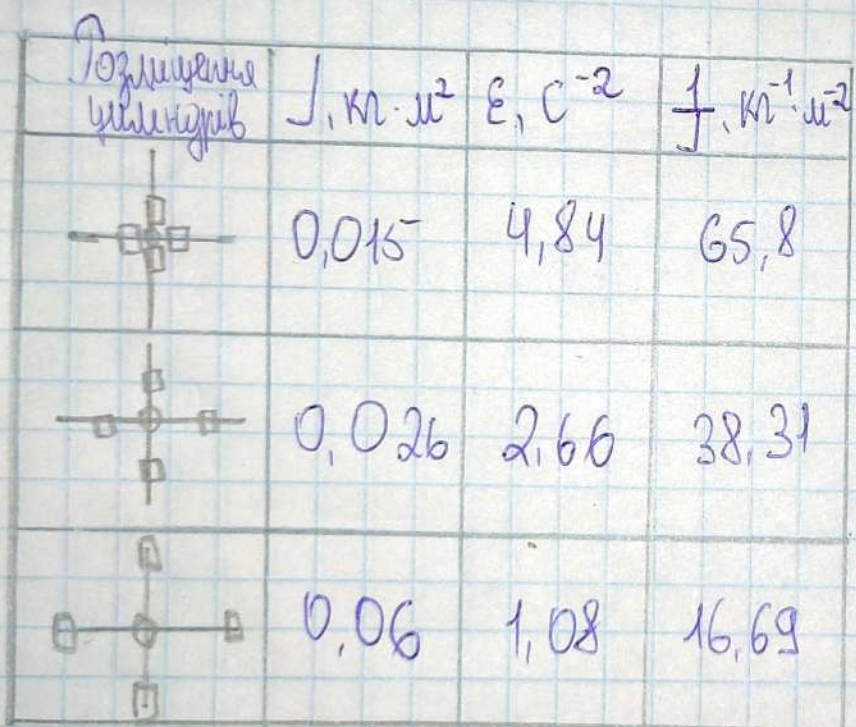 Розміщення
циліндрів
J, кг · м² ε, с⁻² 1/J, кг⁻¹ · м⁻²
0,015 4,84 65,8
0,026 2,66 38,31
0,06 1,08 16,69